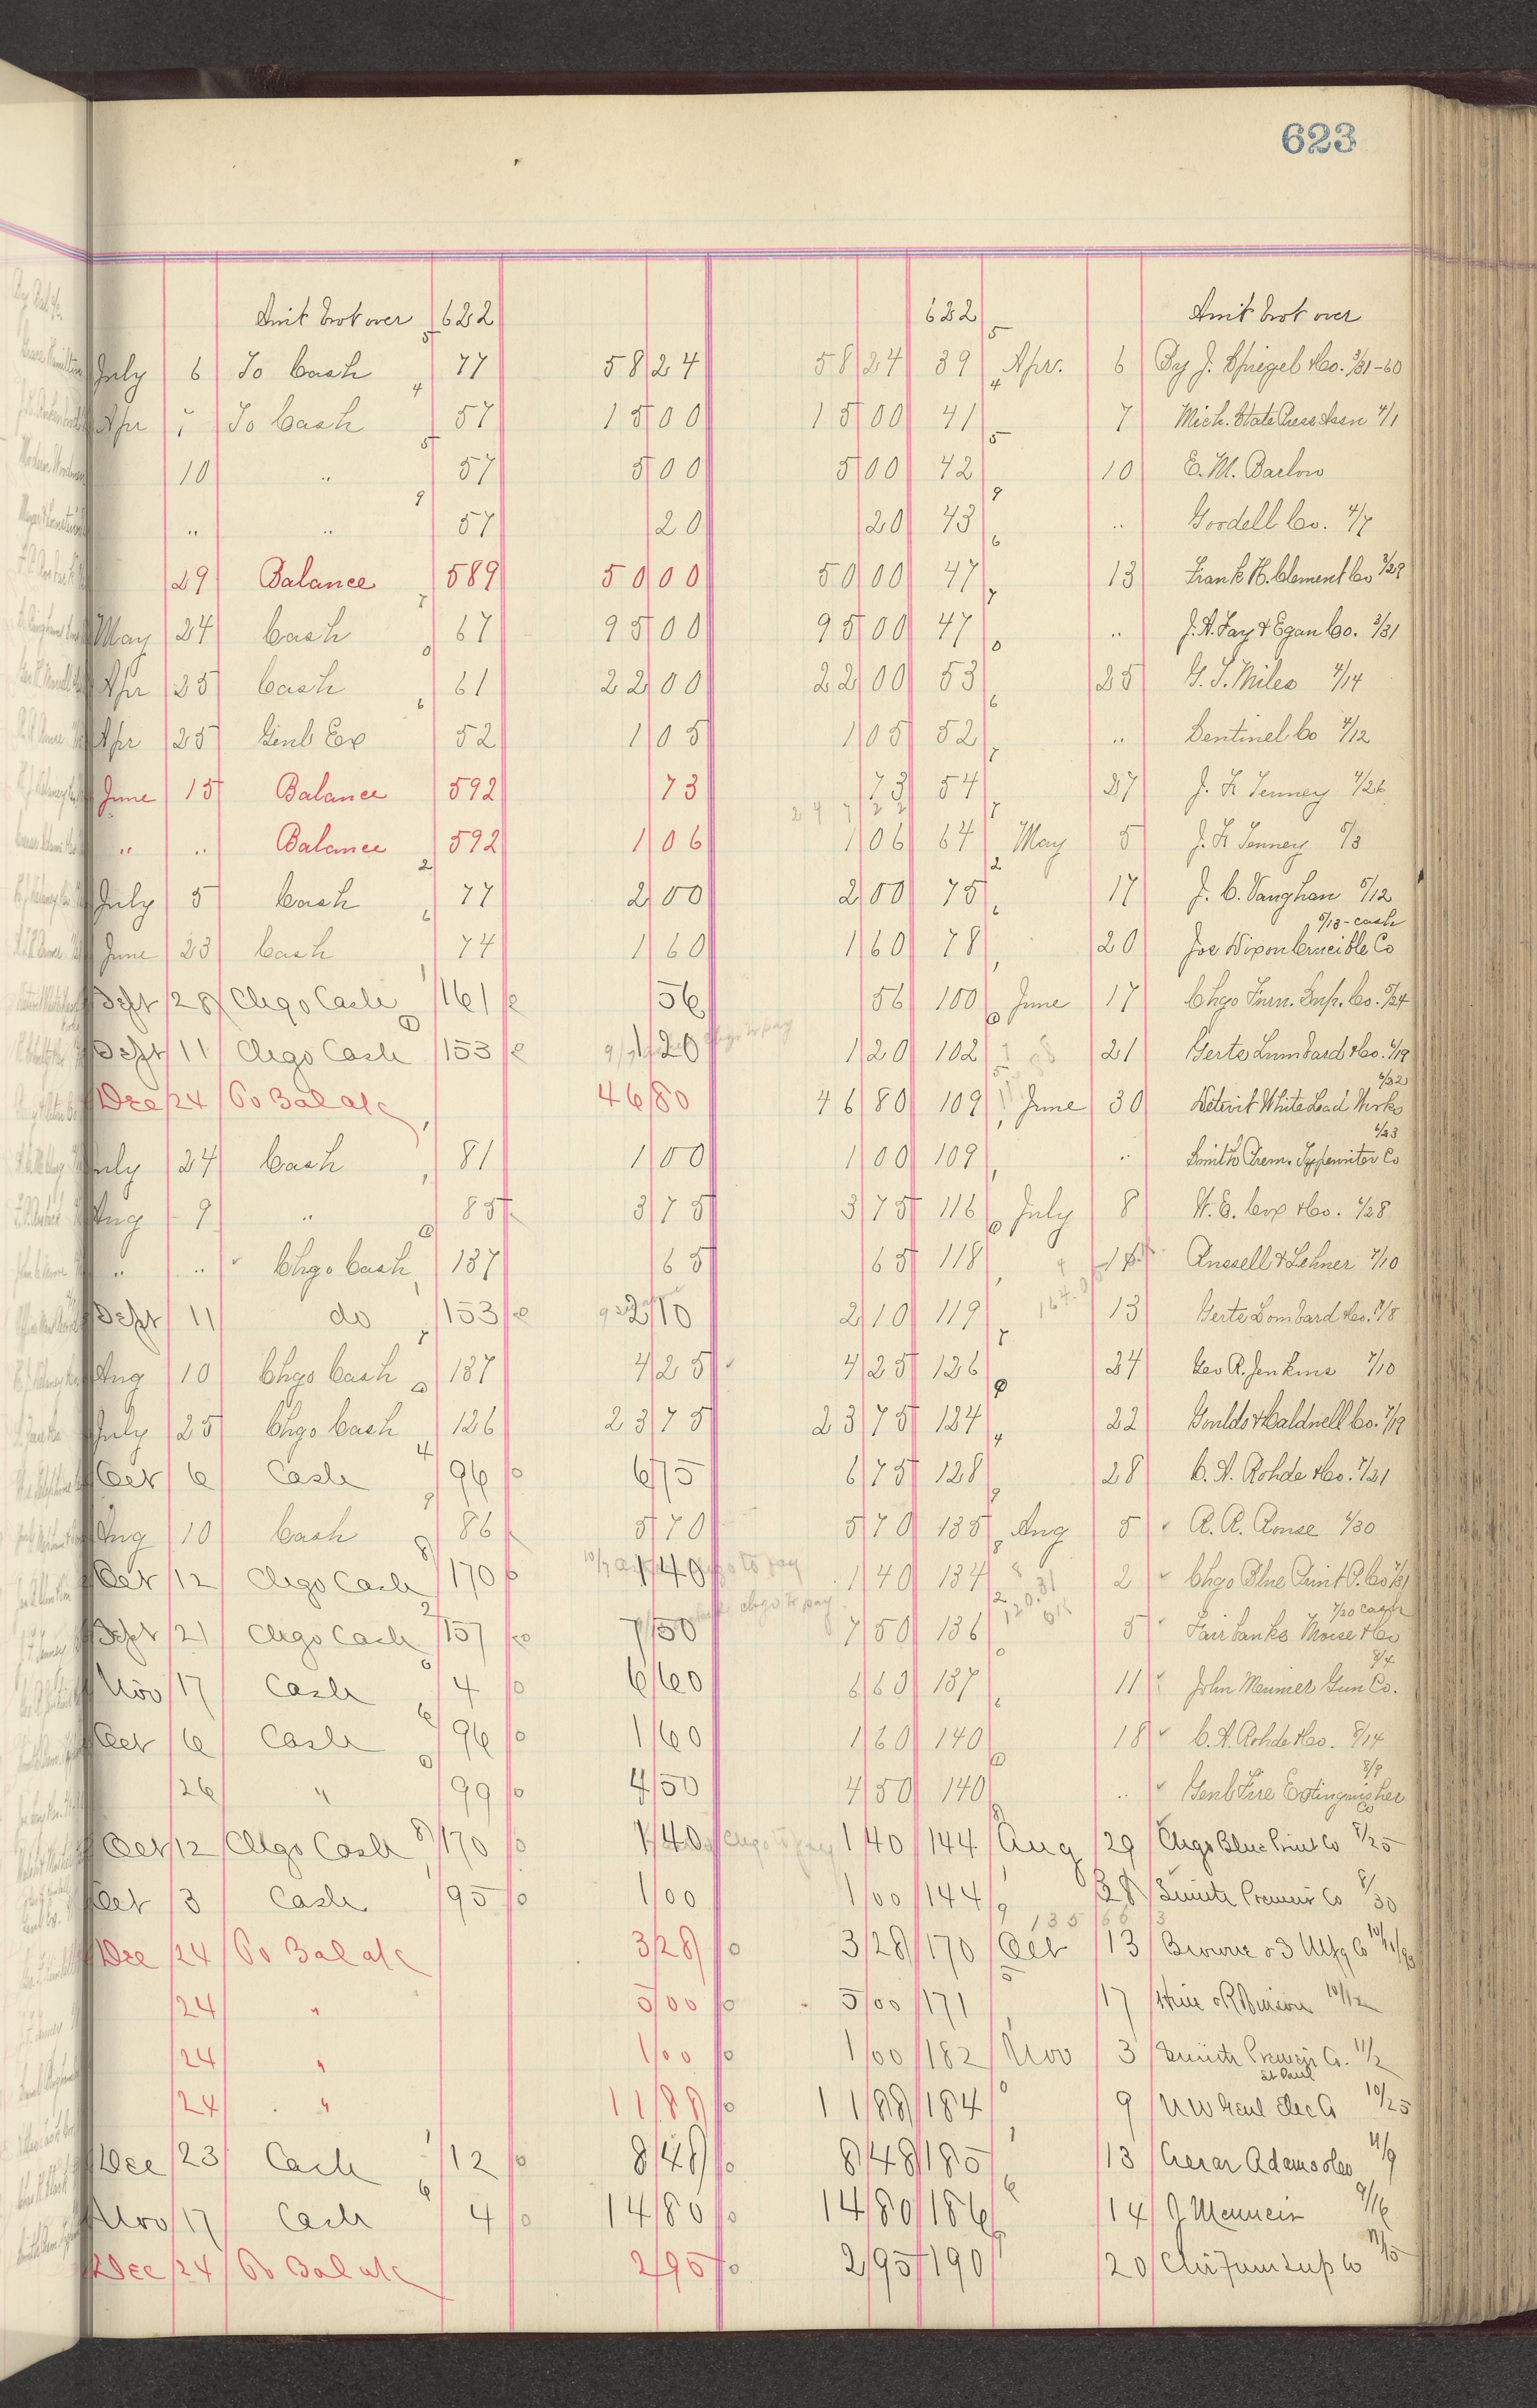 623
Amt brot over 622 622 Amt brot over
July 6 To Cash 77 58 24 58 24 39 Apr. 6 By J. Spiegel & Co. 3/31-60
Apr 7 To Cash 57 15 00 15 00 41 7 Mich. State Press Assn 4/1
10 " 57 5 00 5 00 42 10 E. M. Barlow
" " 57 20 20 43 " Goodell Co. 4/7
29 Balance 589 50 00 50 00 47 13 Frank H. Clement Co 3/29
May 24 Cash 67 95 00 95 00 47 " J. A. Fay & Egan Co. 3/31
Apr 25 Cash 61 22 00 22 00 53 25 G. S. Miles 4/14
Apr 25 Genl Exp 52 1 05 1 05 52 " Sentinel Co 4/12
June 15 Balance 592 73 73 54 27 J. H. Tenney 4/26
" " Balance 592 1 06 1 06 64 May 5 J. H. Tenney 5/3
July 5 Cash 77 2 00 2 00 75 17 J. C. Vaughan 5/12
5/13-cash
June 23 Cash 74 1 60 1 60 78 20 Jos Dixon Crucible Co
Sept 28 Chgo Cash 161 56 56 100 June 17 Chgo Furn. Sup. Co. 5/24
Sept 11 Chgo Cash 153 1 20 1 20 102 21 Gerts Lumbard & Co. 6/19
6/22
Dec 24 To Bal a/c 46 80 46 80 109 June 30 Detroit White Lead Works
6/23
July 24 Cash 81 1 00 1 00 109 " Smith Prem. Typewriter Co
Aug 9 " 85 3 75 3 75 116 July 8 W. E. Cox & Co. 6/28
" " Chgo Cash 137 65 65 118 Ansell & Lehner 7/10
Sept 11 do 153 2 10 2 10 119 13 Gerts Lombard & Co. 7/8
Aug 10 Chgo Cash 137 4 25 4 25 126 24 Geo R. Jenkins 7/10
July 25 Chgo Cash 126 23 75 23 75 124 22 Goulds & Caldwell Co. 7/19
Oct 6 Cash 96 6 75 6 75 128 28 C. A. Rohde & Co. 7/21
Aug 10 Cash 86 5 70 5 70 135 Aug 5 A. R. Rouse 6/30
Oct 12 Chgo Cash 170 1 40 1 40 134 2 Chgo Blue Print P. Co 7/31
7/20 Cash
Sept 21 Chgo Cash 157 7 50 7 50 136 5 Fairbanks Morse & Co
8/4
Nov 17 Cash 4 6 60 6 60 137 11 John Meunier Gun Co.
Oct 6 Cash 96 1 60 1 60 140 18 C. A. Rohde & Co. 8/14
8/9
26 " 99 4 50 4 50 140 " Genl Fire Extinguisher
Co
Oct 12 Chgo Cash 170 1 40 1 40 144 Aug 29 Chgo Blue Print Co 8/25
Oct 3 Cash 95 1 00 1 00 144 28 Smith Premier Co 8/30
Dec 24 To Bal a/c 3 28 3 28 170 Oct 13 Browne & S Mfg Co
24 " 5 00 5 00 171 17 10/12
24 " 1 00 1 00 182 Nov 3 Smith Premier Co. 11/2
St Paul
24 " 11 88 11 88 184 9 N W Genl Elec Co 10/25
Dec 23 Cash 12 8 48 8 48 185 13 Cesar Adams & Co 11/9
Nov 17 Cash 4 14 80 14 80 186 14 J Meunier 9/16
Dec 24 To Bal a/c 2 95 2 95 190 20 Chi Furn Sup Co 11/15